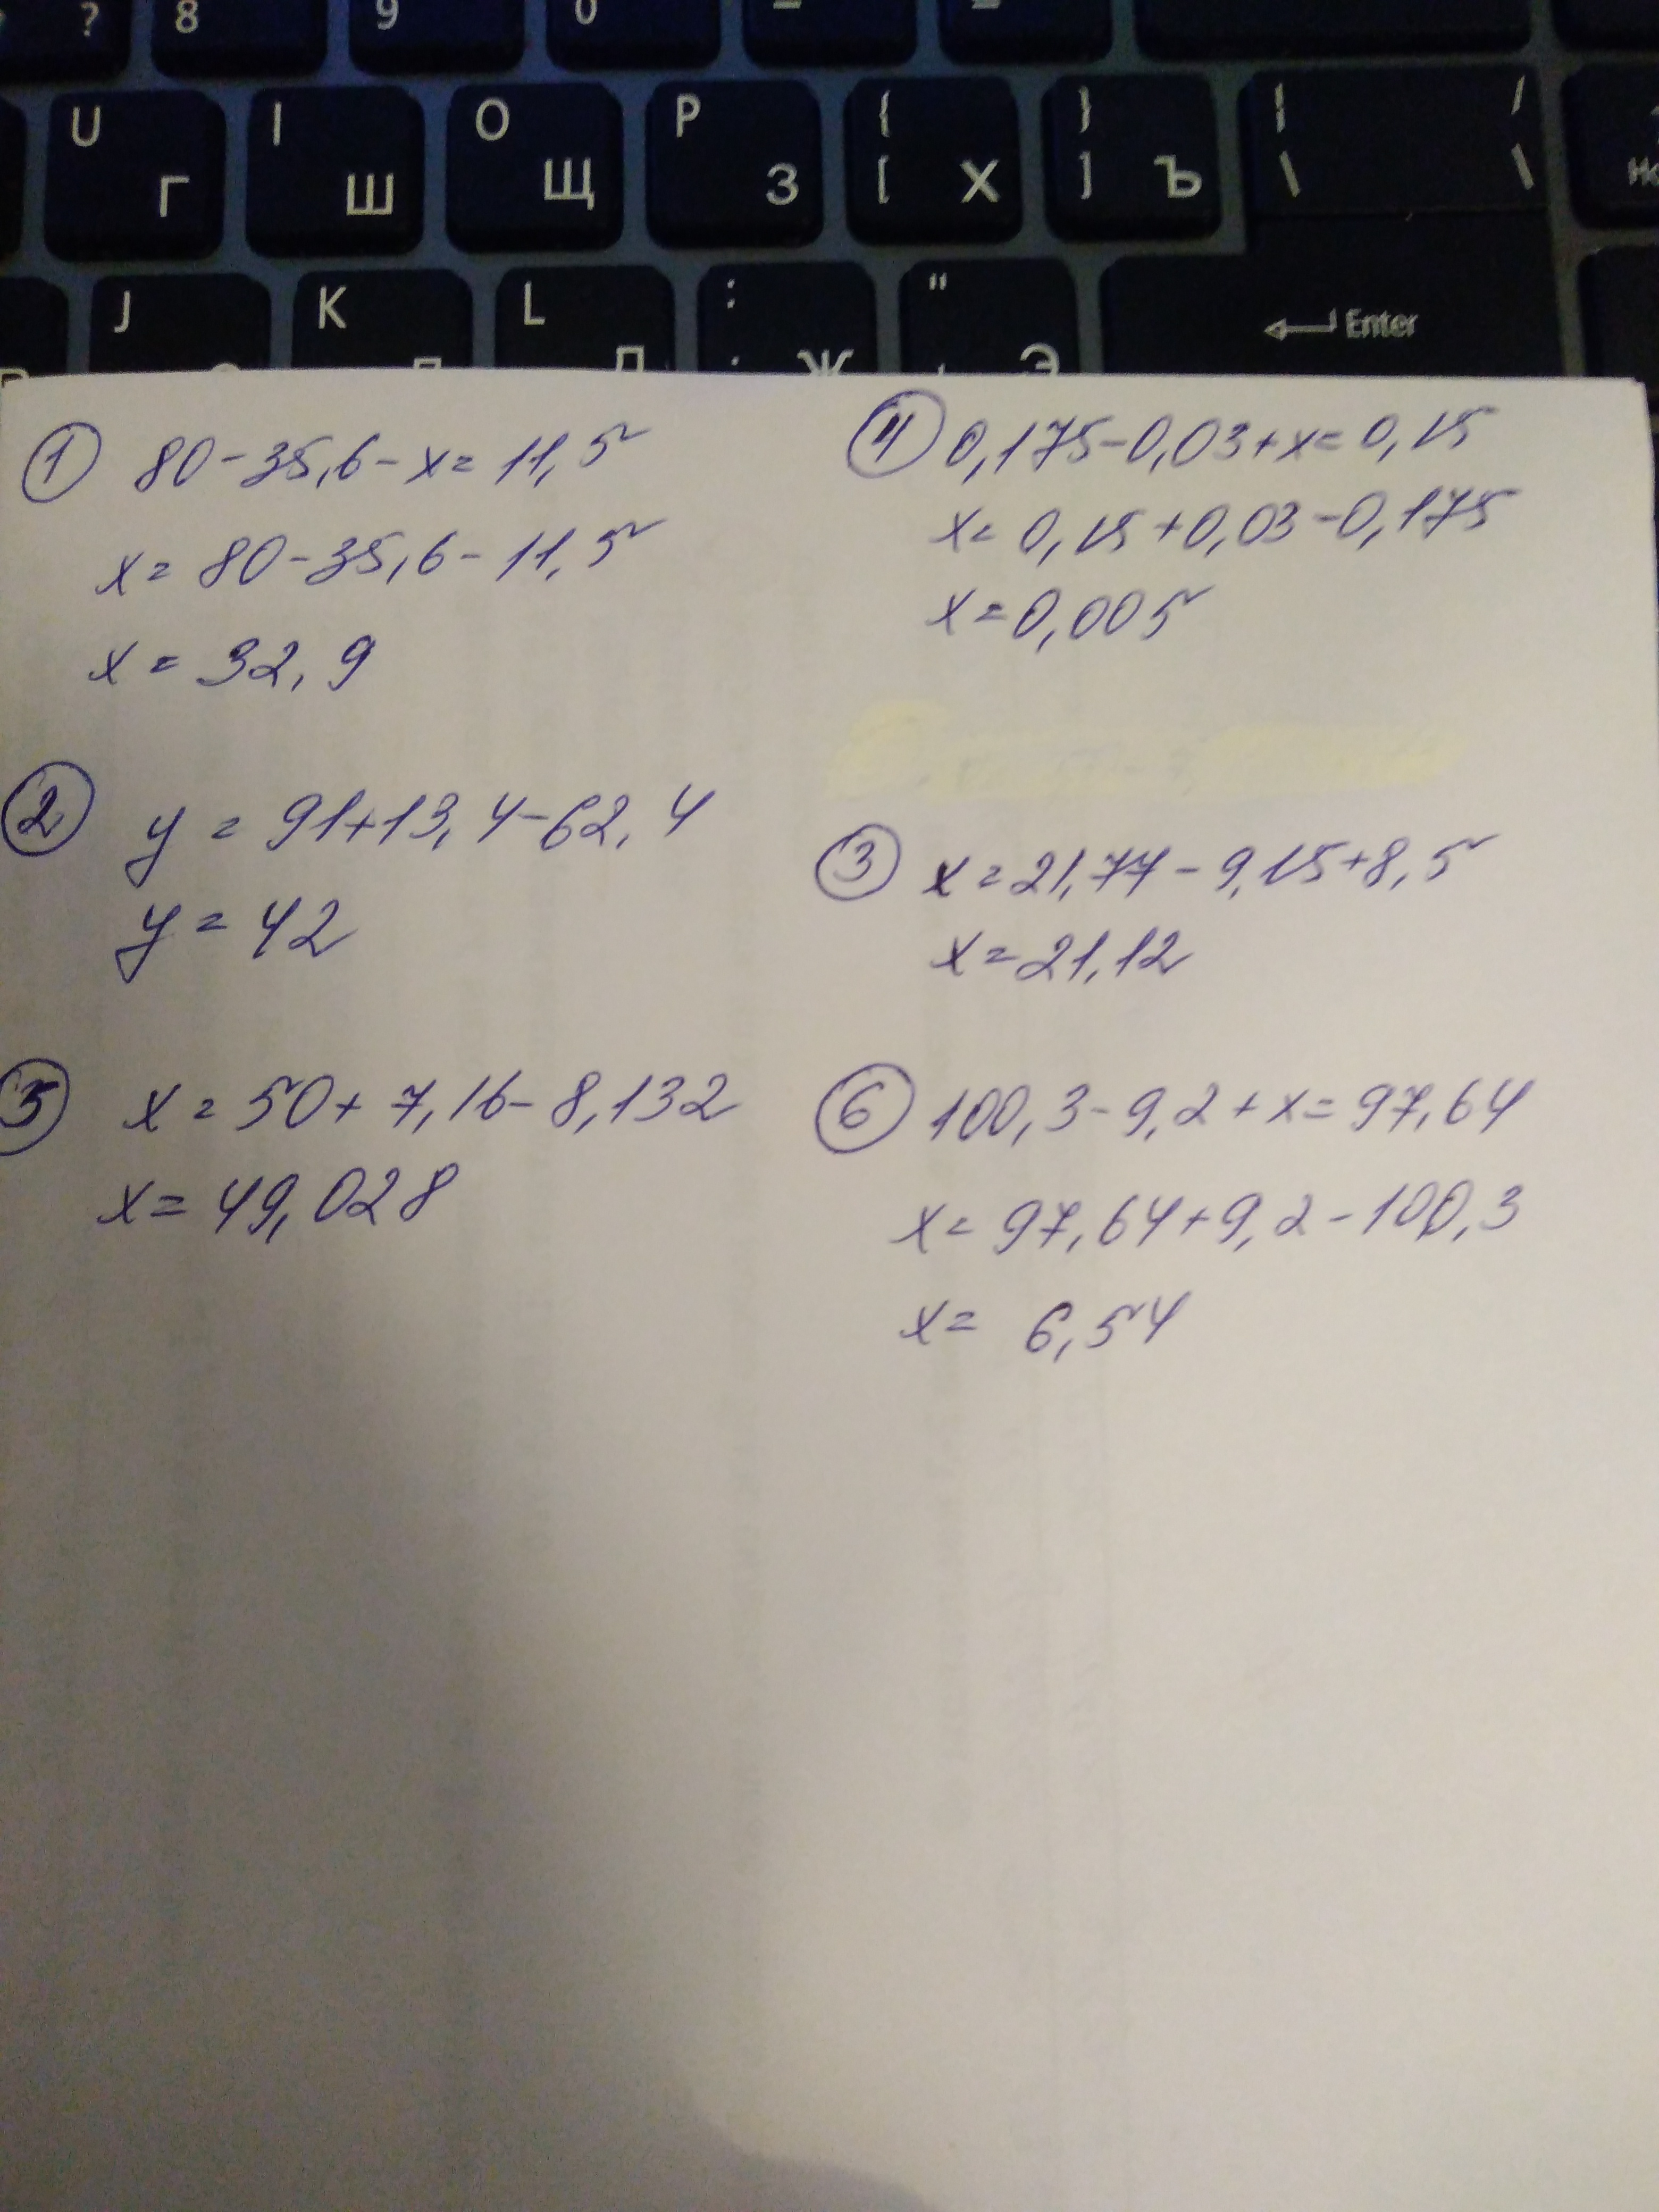 ? 8 9 0
U Г I Ш O Щ P З { [ Х } ] Ъ | \ / \
J K L : ; Ж " Э Enter
① 80-35,6-x=11,5
x=80-35,6-11,5
x=32,9
② y=91+13,4-62,4
y=42
⑤ x=50+7,16-8,132
x=49,028
④ 0,175-0,03+x=0,15
x=0,15+0,03-0,175
x=0,005
③ x=21,77-9,15+8,5
x=21,12
⑥ 100,3-9,2+x=97,64
x=97,64+9,2-100,3
x=6,54